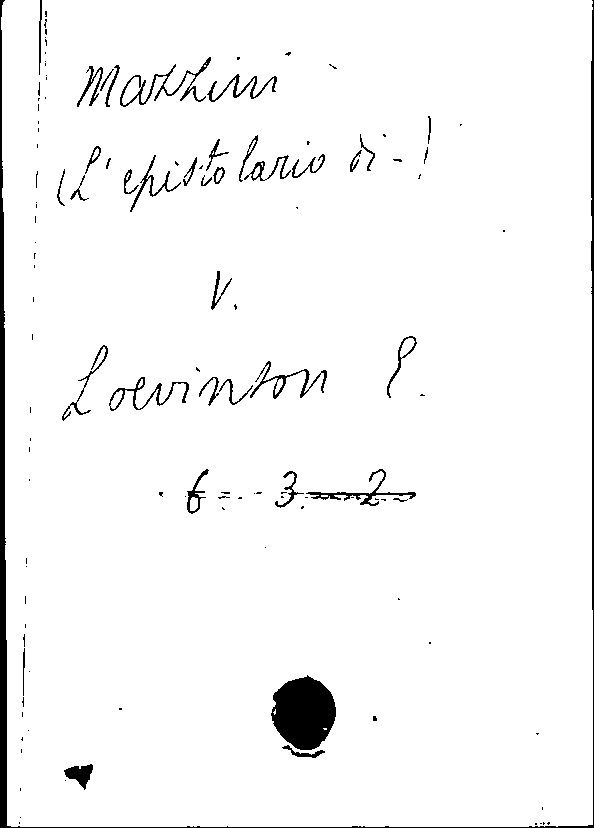 Mazzini
(L'epistolario di -)
V.
Loevinson E.
6 3 2